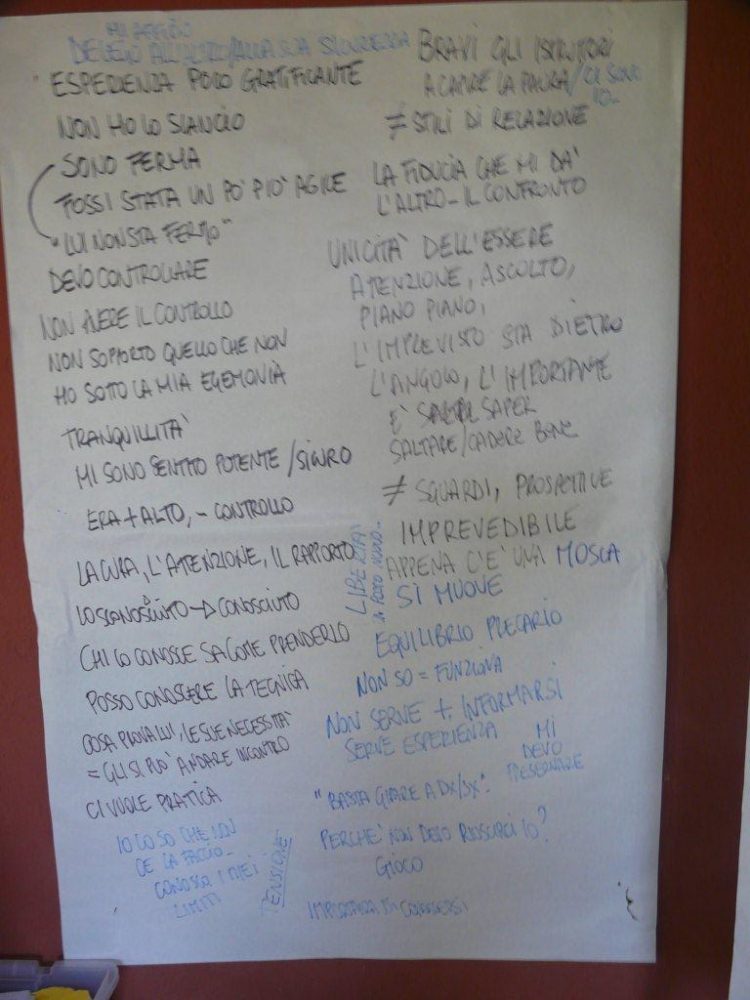 MI AFFIDO
DELEGO ALL'ALTRO/ALLA SUA SICUREZZA
ESPERIENZA POCO GRATIFICANTE
NON HO LO SLANCIO
SONO FERMA
FOSSI STATA UN PO' PIÙ AGILE
"LUI NON STA FERMO"
DEVO CONTROLLARE
NON AVERE IL CONTROLLO
NON SOPPORTO QUELLO CHE NON
HO SOTTO LA MIA EGEMONIA
TRANQUILLITA'
MI SONO SENTITO POTENTE/SICURO
ERA + ALTO, - CONTROLLO
LA CURA, L'ATTENZIONE, IL RAPPORTO
LO SCONOSCIUTO → CONOSCIUTO
CHI LO CONOSCE SA COME PRENDERLO
POSSO CONOSCERE LA TECNICA
COSA PROVA LUI, LE SUE NECESSITA'
= GLI SI PUO' ANDARE INCONTRO
CI VUOLE PRATICA
IO LO SO CHE NON
CE LA FACCIO_
CONOSCO I MIEI
LIMITI
TENSIONE
BRAVI GLI ISTRUTORI
A CAPIRE LA PAURA/CI SONO
IO_
≠ STILI DI RELAZIONE
LA FIDUCIA CHE MI DA'
L'ALTRO_ IL CONFRONTO
UNICITA' DELL'ESSERE
ATTENZIONE, ASCOLTO,
PIANO PIANO,
L'IMPREVISTO STA DIETRO
L'ANGOLO, L'IMPORTANTE
E' SAPER
SALTARE/CADERE BENE
≠ SGUARDI, PROSPETTIVE
IMPREVEDIBILE
APPENA C'E' UNA MOSCA
SI MUOVE
LIBERTA'
EQUILIBRIO PRECARIO
NON SO = FUNZIONA
NON SERVE + INFORMARSI
SERVE ESPERIENZA
MI
DEVO
"BASTA GIRARE A DX/SX".
PERCHE' NON DEVO RIUSCIRCI IO?
GIOCO
IMPORTANZA DI CONOSCERSI